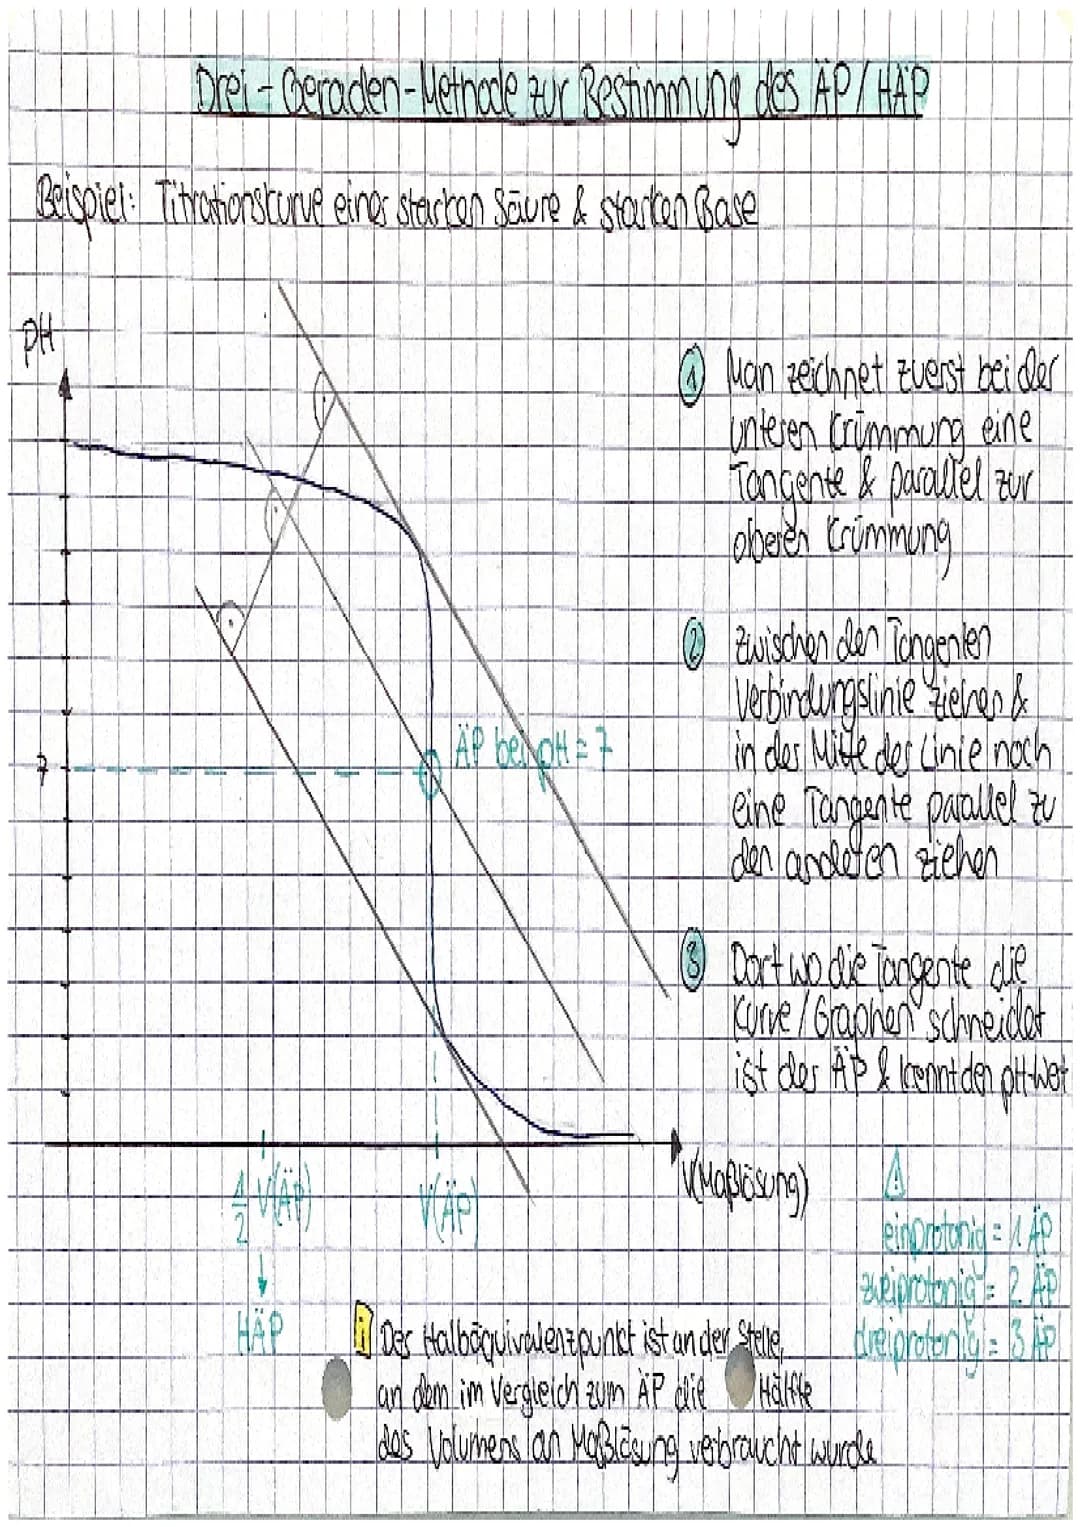 Drei-Geraden-Methode zur Bestimmung des ÄP / HÄP
Beispiel: Titrationskurve einer starken Säure & starken Base
pH
7
ÄP bei pH = 7
1 Man zeichnet zuerst bei der
unteren Krümmung eine
Tangente & parallel zur
oberen Krümmung
2 Zwischen den Tangenten
Verbindungslinie ziehen &
in der Mitte der Linie noch
eine Tangente parallel zu
den anderen ziehen
3 Dort wo die Tangente die
Kurve / Graphen schneidet
ist der ÄP & kennt den pH-Wet
V(Maßlösung)
1/2 V(ÄP)
V(ÄP)
HÄP
einprotonig = 1 ÄP
zweiprotonig = 2 ÄP
dreiprotonig = 3 ÄP
i Der Halbäquivalenzpunkt ist an der Stelle,
an dem im Vergleich zum ÄP die Hälfte
des Volumens an Maßlösung verbraucht wurde